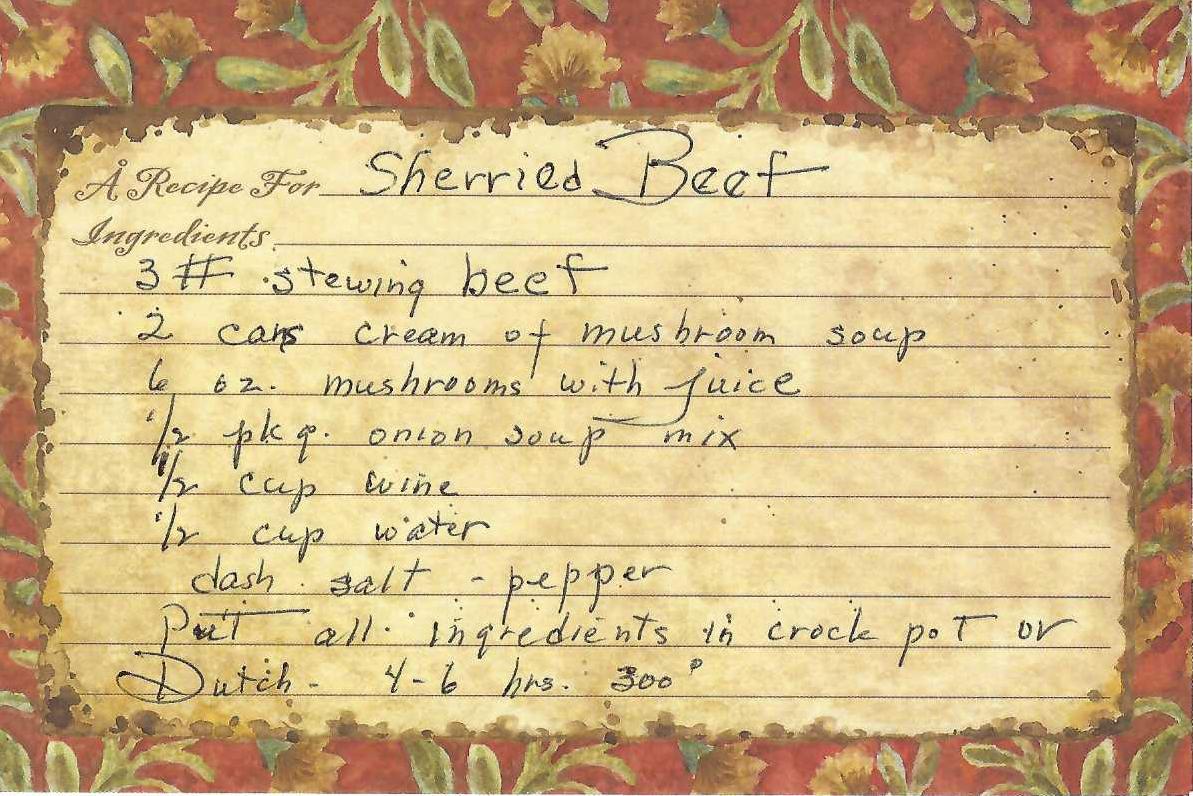 A Recipe For Sherried Beef
Ingredients
3 # stewing beef
2 cans cream of mushroom soup
6 oz. mushrooms with juice
1/2 pkg. onion soup mix
1/2 cup wine
1/2 cup water
dash salt - pepper
Put all ingredients in crock pot or
Dutch - 4-6 hrs. 300°